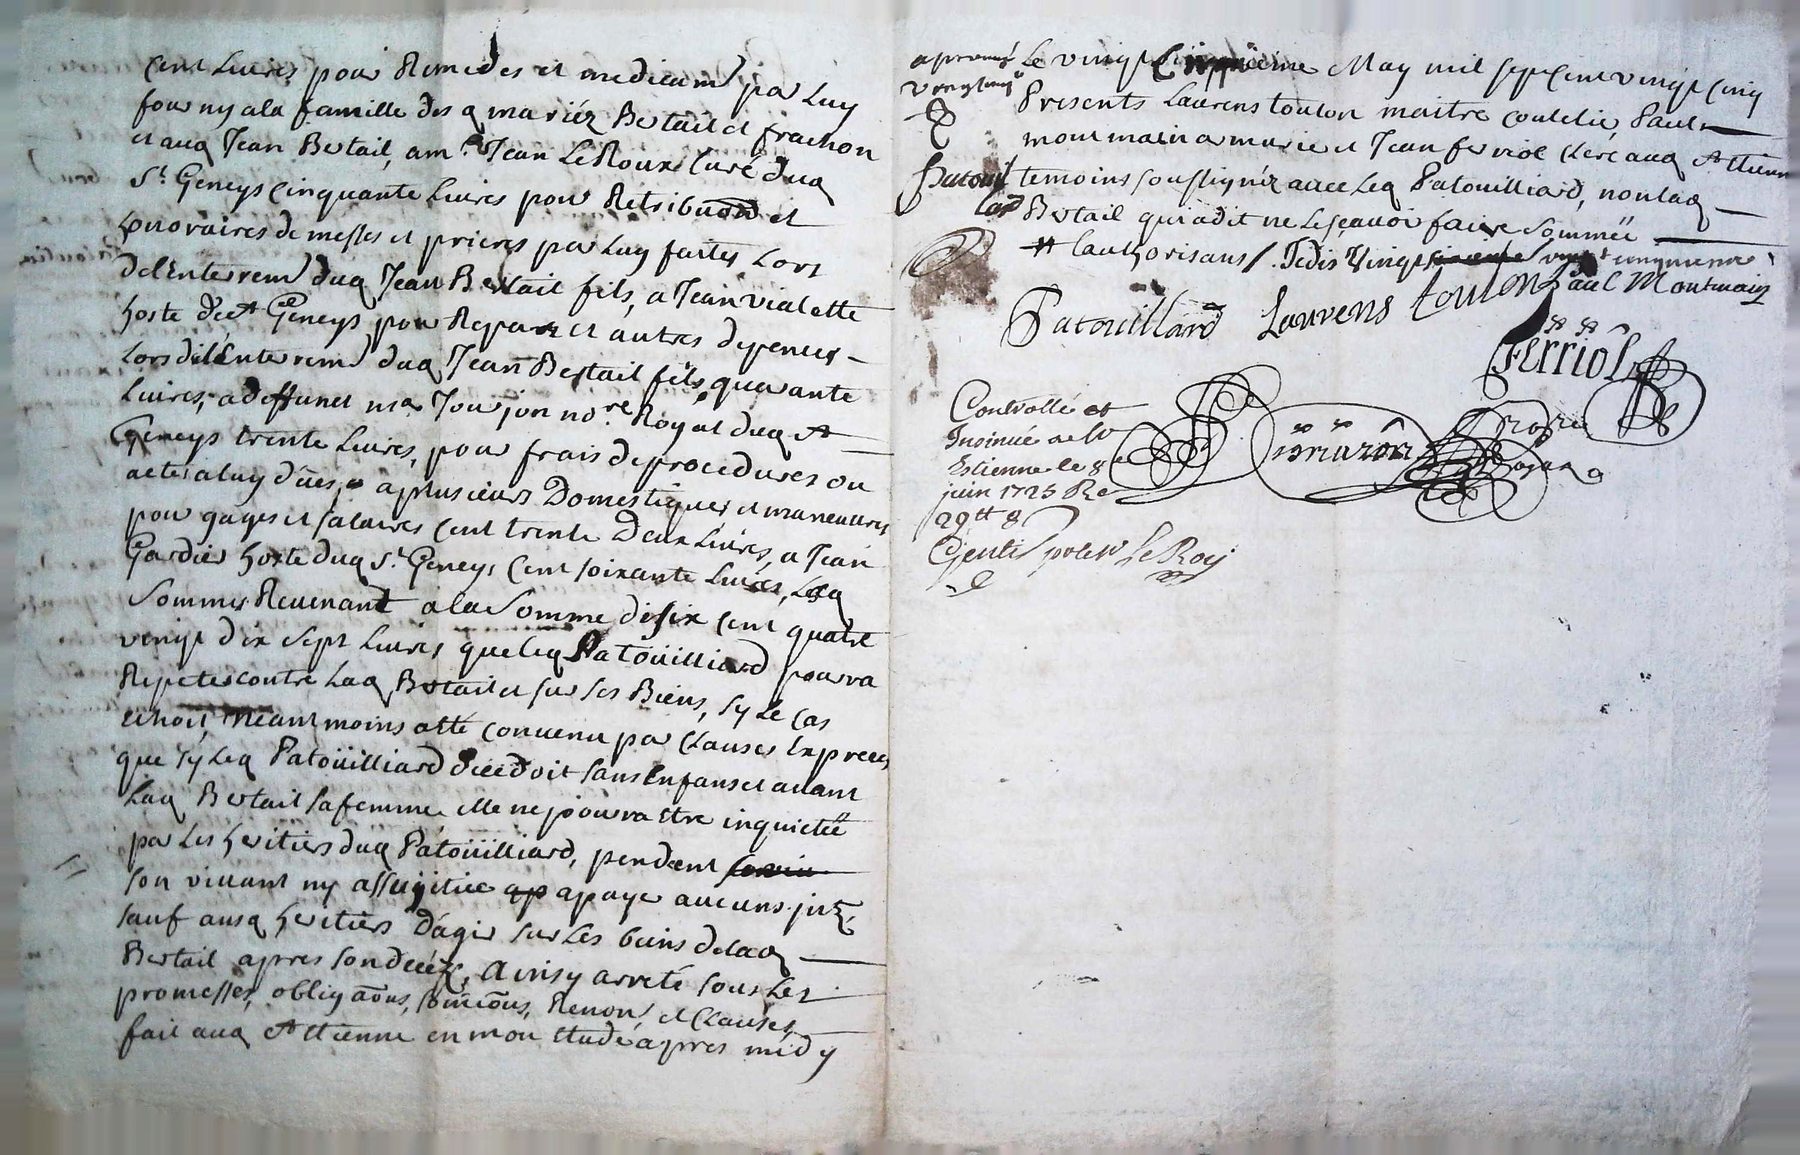 Cent Livres pour Remedes et medicam. par Luy
fourny ala famille des q mariéz Bertail et frachon
et auq Jean Bertail, a mre Jean Le Roux Curé duq
St. Geneys Cinquante Livres pour Retribuon et
honoraires de messes et prieres par Luy faites Lors
del'Enterrem duq Jean Bertail fils, a Jean vialette
hoste de St Geneys pour Repas et autres depences
Lors de l'Enterrem duq Jean Bertail fils, quarante
Livres, a deffunct me Jourjon nore Royal duq St
Geneys trente Livres, pour frais de procedures ou
actes a luy dües, a plusieurs Domestiques et maneuvres
pour gages et salaires Cent trente Deux Livres, a Jean
Gardier hoste duq St. Geneys Cent soixante Livres, Lesq
Sommes Revenant a la Somme de six Cent quatre
vingt dix sept Livres que leq Patoüilliard pourra
Repeter contre Laq Bertail et sur ses Biens, sy Le Cas
echoit, Neantmoins a été convenu par Clauses Expresses
que sy Leq Patoüilliard decedoit sans Enfans et avant
Laq Bertail sa femme elle ne pourra Etre inquietée
par Les heritiers duq Patoüilliard, pendent
son vivant ny assujitiee a paye aucuns
sauf ausq heritiers d'agir sur Les biens delaq
Bertail apres son decéz, Ainsy arreté sous Les
promesses, obligaons, Renon, et Clauses,
fait auq St Etienne en mon Etude apres midy
aprouvé Le vingt May mil sept Cent vingt Cinq
vingt
Presents Laurens toulon maitre coutelie, Paul
montmain armurie et Jean ferriol Clerc auq St Etienne
Patouil temoins soussignéz avec Leq Patouilliard, non laq
lard Bertail qui a dit ne Le sçavoir faire Sommée
# l'authorisant Je dis vingt
Patouillard Laurens toulon Paul Montmain
fErriol
Controllé et
Insinué a St
Estienne le 8e
juin 1725 Re
Royal
Gentil pour Le Roy